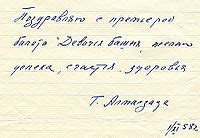 Поздравляю с премьерой
балета "Девичья башня, желаю
успеха, счастья, здоровья
Т. Алтаезада
1/XI 58г.